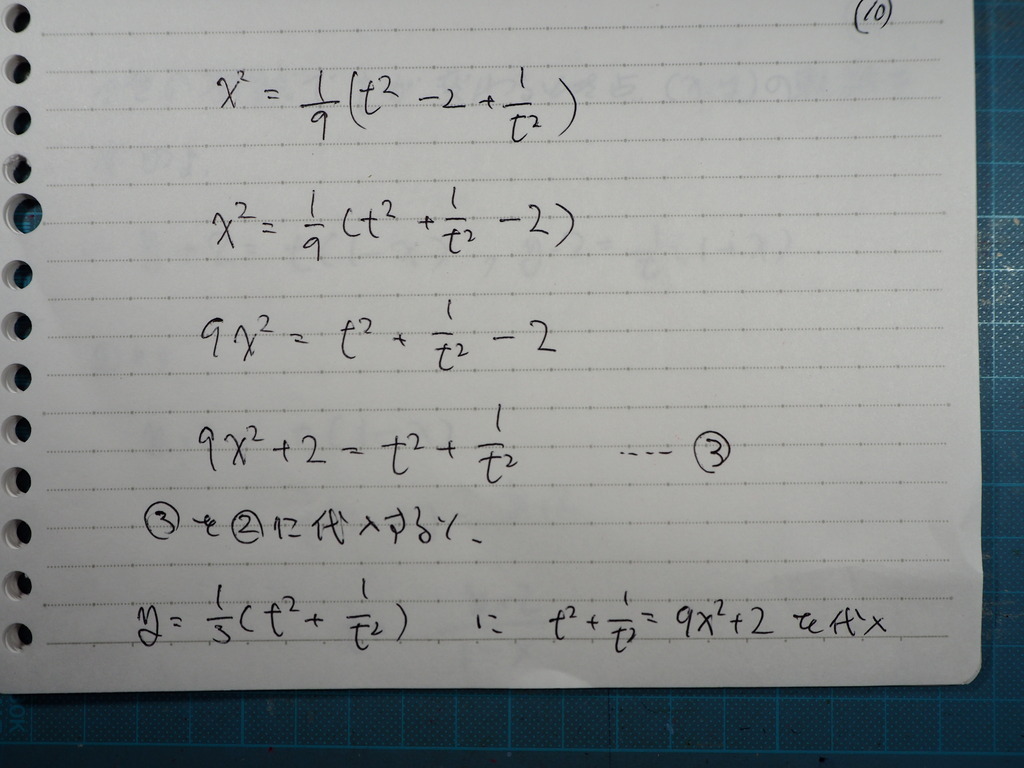 (10)
x² = 1/9 (t² - 2 + 1/t²)
x² = 1/9 (t² + 1/t² - 2)
9x² = t² + 1/t² - 2
9x² + 2 = t² + 1/t² ····· ③
③を②に代入すると.
y = 1/3 (t² + 1/t²) に t² + 1/t² = 9x² + 2 を代入